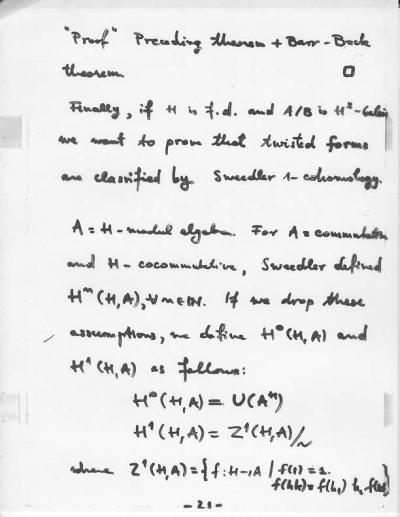 "Proof" Preceding theorem + Barr-Beck
theorem. □
Finally, if H is f.d. and A/B is H*-Galois
we want to prove that twisted forms
are classified by Sweedler 1-cohomology.
A = H-modul algebra. For A = commutative
and H-cocommutative, Sweedler defined
Hⁿ(H,A), ∀ n∈ℕ. If we drop these
assumptions, we define H⁰(H,A) and
H¹(H,A) as follows:
H⁰(H,A) = U(Aᴴ)
H¹(H,A) = Z¹(H,A)/~
where Z¹(H,A) = { f: H→A / f(1) = 1.
f(hk) = f(h₁) h₂ f(k) }
- 21 -